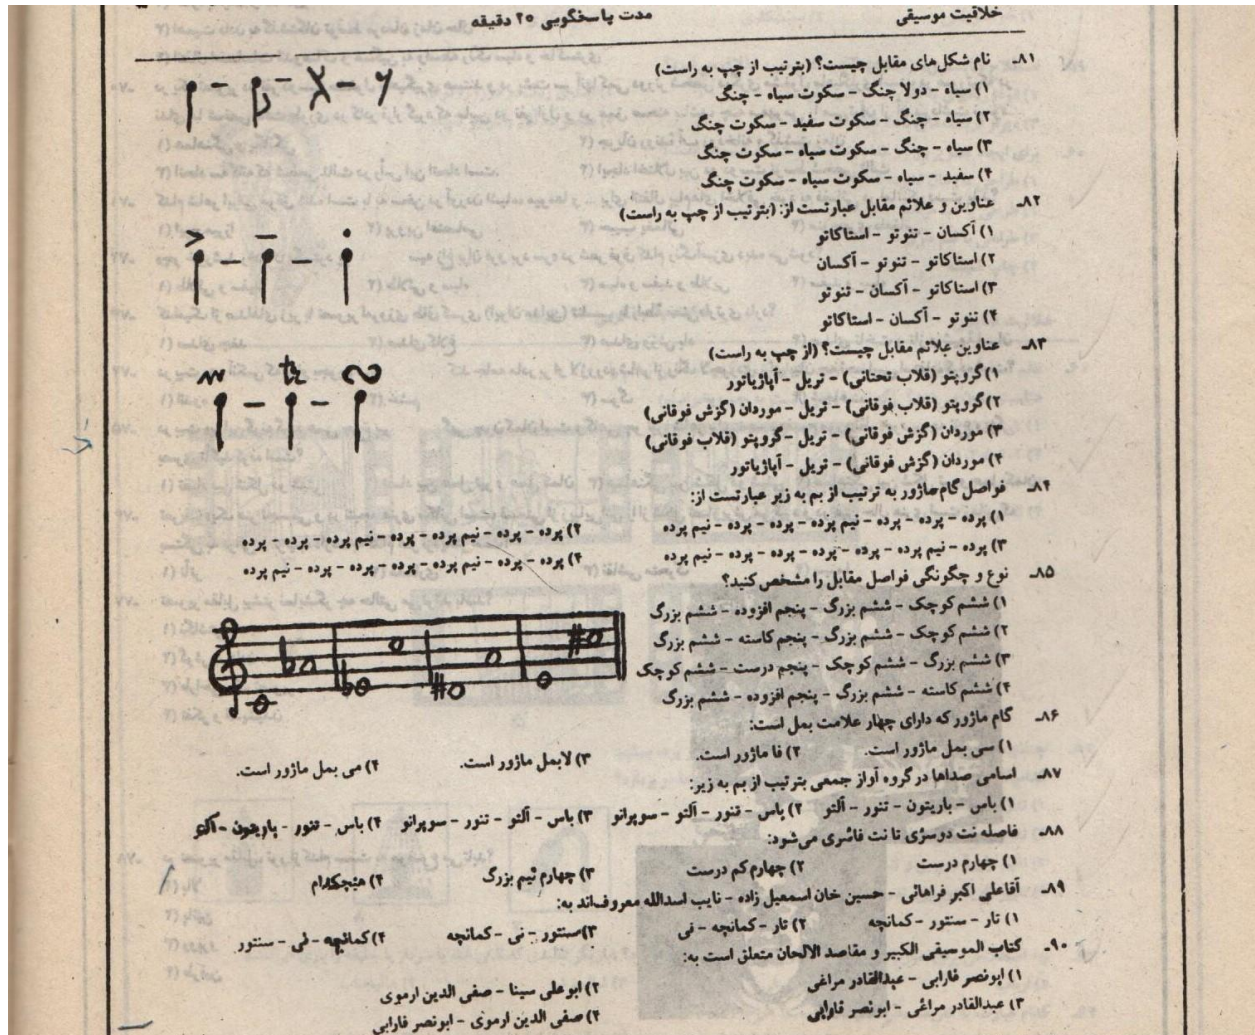 خلاقیت موسیقی
مدت پاسخگویی ۲۰ دقیقه
۸۱ـ نام شکل‌های مقابل چیست؟ (بترتیب از چپ به راست)
۱) سیاه - دولا چنگ - سکوت سیاه - چنگ
۲) سیاه - چنگ - سکوت سفید - سکوت چنگ
۳) سیاه - چنگ - سکوت سیاه - سکوت چنگ
۴) سفید - سیاه - سکوت سیاه - سکوت چنگ
۸۲ـ عناوین و علائم مقابل عبارتست از: (بترتیب از چپ به راست)
۱) آکسان - تنوتو - استاکاتو
۲) استاکاتو - تنوتو - آکسان
۳) استاکاتو - آکسان - تنوتو
۴) تنوتو - آکسان - استاکاتو
۸۳ـ عناوین علائم مقابل چیست؟ (از چپ به راست)
tr
۱) گروپتو (قلاب تحتانی) - تریل - آپاژیاتور
۲) گروپتو (قلاب فوقانی) - تریل - موردان (گزش فوقانی)
۳) موردان (گزش فوقانی) - تریل - گروپتو (قلاب فوقانی)
۴) موردان (گزش فوقانی) - تریل - آپاژیاتور
۸۴ـ فواصل گام ماژور به ترتیب از بم به زیر عبارتست از:
۱) پرده - پرده - پرده - نیم پرده - پرده - پرده - نیم پرده
۲) پرده - پرده - نیم پرده - پرده - نیم پرده - پرده - پرده
۳) پرده - نیم پرده - پرده - پرده - پرده - پرده - نیم پرده
۴) پرده - پرده - نیم پرده - پرده - پرده - پرده - نیم پرده
۸۵ـ نوع و چگونگی فواصل مقابل را مشخص کنید؟
۱) ششم کوچک - ششم بزرگ - پنجم افزوده - ششم بزرگ
۲) ششم کوچک - ششم بزرگ - پنجم کاسته - ششم بزرگ
۳) ششم بزرگ - ششم کوچک - پنجم درست - ششم کوچک
۴) ششم کاسته - ششم بزرگ - پنجم افزوده - ششم بزرگ
۸۶ـ گام ماژور که دارای چهار علامت بمل است:
۱) سی بمل ماژور است. ۲) فا ماژور است. ۳) لابمل ماژور است. ۴) می بمل ماژور است.
۸۷ـ اسامی صداها در گروه آواز جمعی بترتیب از بم به زیر:
۱) باس - باریتون - تنور - آلتو ۲) باس - تنور - آلتو - سوپرانو ۳) باس - آلتو - تنور - سوپرانو ۴) باس - تنور - باریتون - آلتو
۸۸ـ فاصله نت دوسڑی تا نت فاسُری می‌شود:
۱) چهارم درست ۲) چهارم کم درست ۳) چهارم نیم بزرگ ۴) هیچکدام
۸۹ـ آقاعلی اکبر فراهانی - حسین خان اسمعیل زاده - نایب اسدالله معروف‌اند به:
۱) تار - سنتور - کمانچه ۲) تار - کمانچه - نی ۳) سنتور - نی - کمانچه ۴) کمانچه - نی - سنتور
۹۰ـ کتاب الموسیقی الکبیر و مقاصد الالحان متعلق است به:
۱) ابونصر فارابی - عبدالقادر مراغی
۲) ابوعلی سینا - صفی الدین ارموی
۳) عبدالقادر مراغی - ابونصر فارابی
۴) صفی الدین ارموی - ابونصر فارابی